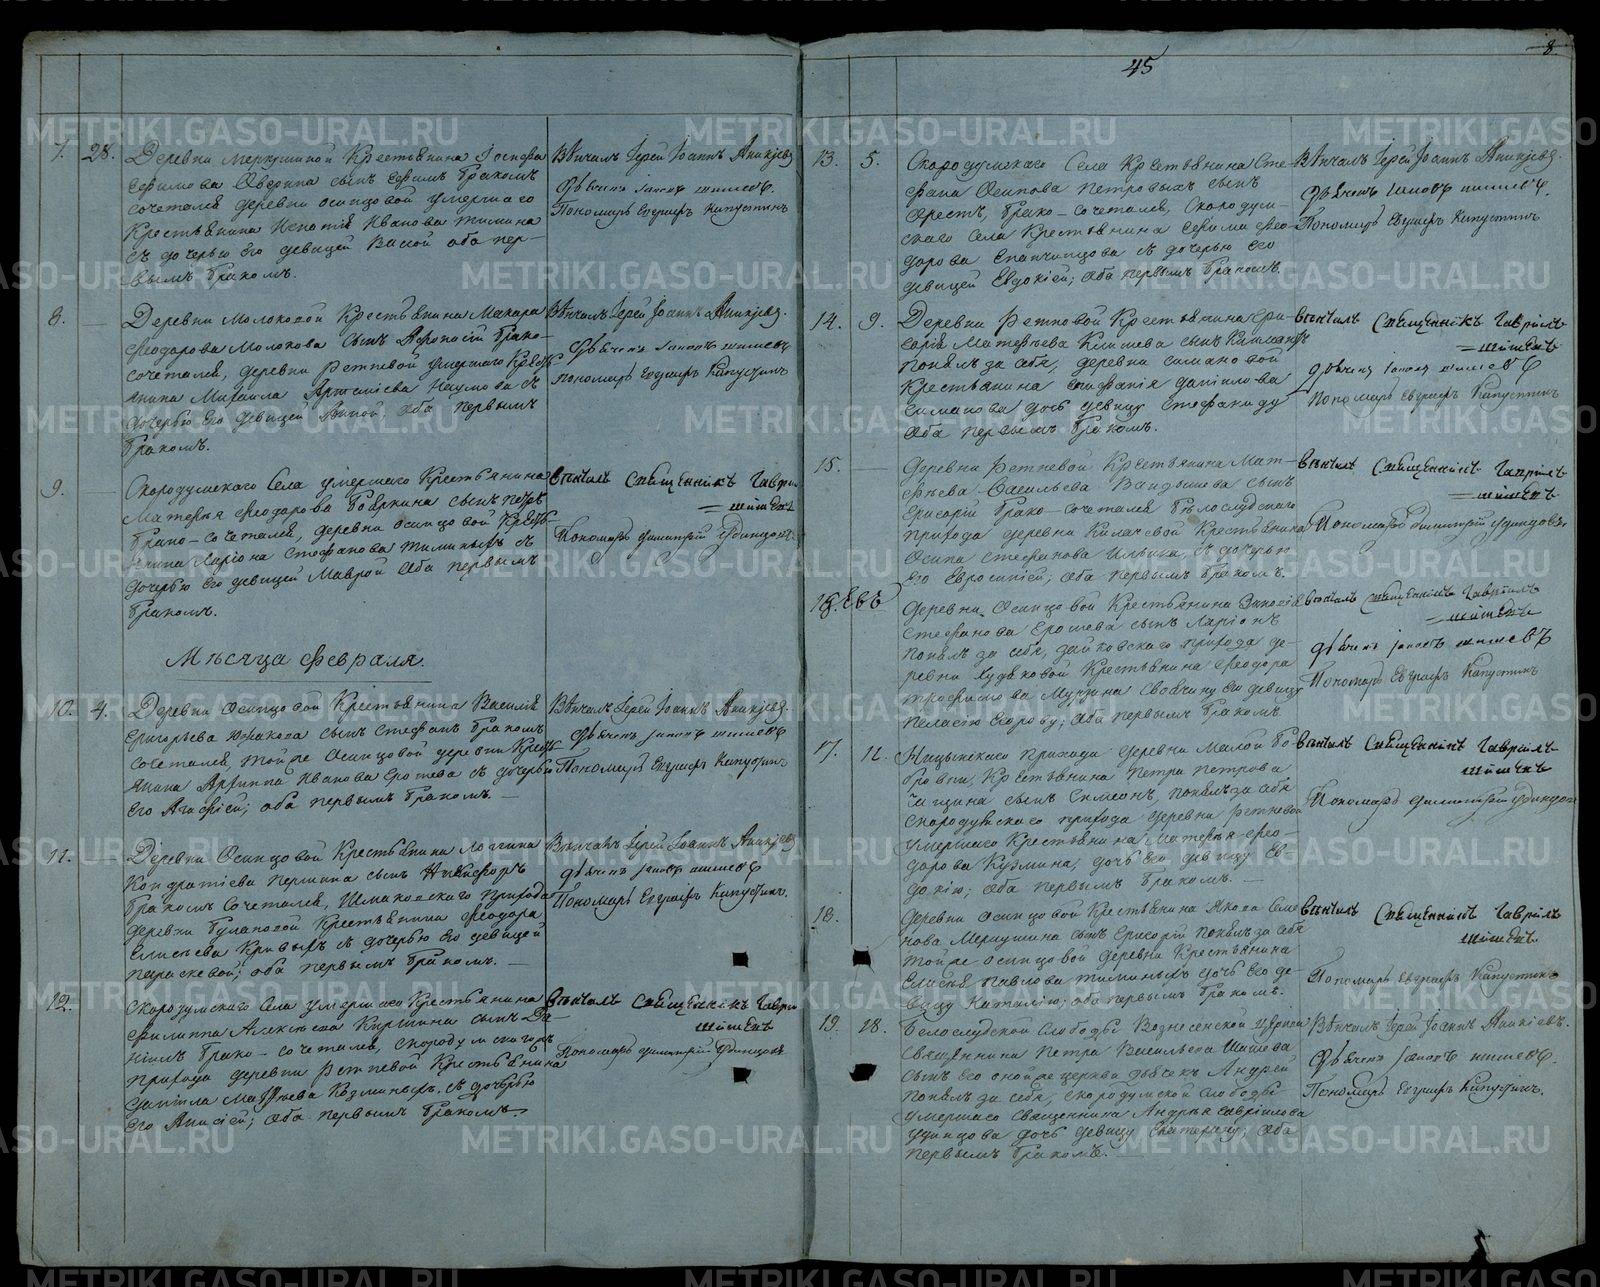 45
8
7. 28. Деревни Меркушиной Крестьянина
сынъ Ефимъ бракомъ
сочетался деревни Осинцовой умершаго
Крестьянина Ивана Тимина
съ дочерью его девицей Васой оба пер-
вымъ бракомъ.
Вѣнчалъ Іерей Іоаннъ Аникіевъ
Дьячекъ Іаковъ Шишевъ.
Пономарь Евграфъ Капустинъ
8. — Деревни Молоковой Крестьянина Макара
Феодорова Молокова сынъ брако-
сочетался, деревни Ретневой умершаго Кресть-
янина Михаила Наумова съ
дочерью его девицей Анной оба первымъ
бракомъ.
Вѣнчалъ Іерей Іоаннъ Аникіевъ.
Дьячекъ Іаковъ Шишевъ
Пономарь Евграфъ Капустинъ
9. Скородумскаго Села умершаго Крестьянина
Матфея Феодорова Бояркина сынъ Петръ
брако-сочетался, деревни Осинцовой Кресть-
янина Ларіона Стефанова Тиминыхъ съ
дочерью его девицей Маврой оба первымъ
бракомъ.
Вѣнчалъ Священникъ Гавріи
Пономарь Димитрій Удинцовъ
Мѣсяца Февраля.
10. 4. Деревни Осинцовой Крестьянина Василія
Григорьева Южакова сынъ Стефанъ бракомъ
сочетался, той же Осинцовой деревни Кресть-
янина Архиппа Иванова Ерошева съ дочерью
его Агафіей; оба первымъ бракомъ. —
Вѣнчалъ Іерей Іоаннъ Аникіевъ.
Дьячекъ Іаковъ Шишевъ
Пономарь Евграфъ Капустинъ
11. — Деревни Осинцовой Крестьянина Логгина
Кондратіева Першина сынъ Никифоръ
бракомъ сочетался, Шмаковскаго прихода
деревни Булановой Крестьянина Феодора
Елисѣева Кривыхъ съ дочерью его девицей
Параскевой; оба первымъ бракомъ. —
Вѣнчалъ Іерей Іоаннъ Аникіевъ
Дьячекъ Іаковъ Шишевъ
Пономарь Евграфъ Капустинъ.
12. Скородумскаго Села умершаго Крестьянина
Филиппа Алексѣева сынъ Да-
ніилъ брако-сочетался, скородумскаго
прихода деревни Ретневой Крестьянина
Даніила Матфѣева Козминыхъ съ дочерью
его Анисіей; оба первымъ бракомъ
Вѣнчалъ Священникъ Гаври
Пономарь Димитрій Удинцовъ
13. 5. Скородумскаго Села Крестьянина Сте-
фана Осипова Петровыхъ сынъ
брако-сочетался, Скородум-
скаго Села Крестьянина Ефима Фео-
дорова Епанчинцова съ дочерью его
девицей Евдокіей; оба первымъ бракомъ.
Вѣнчалъ Іерей Іоаннъ Аникіевъ.
Дьячекъ Іаковъ Шишевъ.
Пономарь Евграфъ Капустинъ
14. 9. Деревни Ретневой Крестьянина Гри-
горія Матфѣева Клишева сынъ
понялъ за себя, деревни Симановой
Крестьянина Епифанія Даніилова
Симанова дочь девицу Стефаниду
оба первымъ бракомъ.
Вѣнчалъ Священникъ Гавріилъ
Дьячекъ Іаковъ Шишевъ
Пономарь Евграфъ Капустинъ
15. — Деревни Ретневой Крестьянина Мат-
фѣева Васильева Вандышева сынъ
Григорій брако-сочетался Бѣлослудскаго
прихода деревни Килачевой Крестьянина
Осипа Стефанова Ильина, съ дочерью
его Евросиніей; оба первымъ бракомъ.
Вѣнчалъ Священникъ Гавріилъ
Пономарь Димитрій Удинцовъ
16. Деревни Осинцовой Крестьянина
Стефанова Ерошева сынъ Ларіонъ
понялъ за себя, Зайковскаго прихода де-
ревни Худяковой Крестьянина Феодора
Трофимова Мурзина своячину его девицу
Пелагію Егорову; оба первымъ бракомъ.
Вѣнчалъ Священникъ Гавріилъ
Дьячекъ Іаковъ Шишевъ
Пономарь Евграфъ Капустинъ
17. 11. Ницынскаго прихода деревни Малой Бо-
бровки, Крестьянина Петра Петрова
сынъ Симеонъ, понялъ за себя
Скородумскаго прихода деревни Ретневой
умершаго Крестьянина Матфея Фео-
дорова Кузмина, дочь его девицу Ев-
докію; оба первымъ бракомъ. —
Вѣнчалъ Священникъ Гавріилъ
Пономарь Димитрій Удинцовъ
18. Деревни Осинцовой Крестьянина Якова Семе-
нова Меркушина сынъ Григорій понялъ за себя
той же Осинцовой деревни Крестьянина
Елисѣя Павлова Тиминыхъ дочь его де-
вицу Наталію; оба первымъ бракомъ.
Вѣнчалъ Священникъ Гавріилъ
Пономарь Евграфъ Капустинъ
19. 28. Белослудской Слободы Вознесенской церкви
Священника Петра Васильева Шишева
сынъ его оной же церкви дьячекъ Андрей
понялъ за себя, скородумской слободы
умершаго священника Андрея Гавріилова
Удинцова дочь девицу Екатерину; оба
первымъ бракомъ. —
Вѣнчалъ Іерей Іоаннъ Аникіевъ.
Дьячекъ Іаковъ Шишевъ.
Пономарь Евграфъ Капустинъ.
METRIKI.GASO-URAL.RU